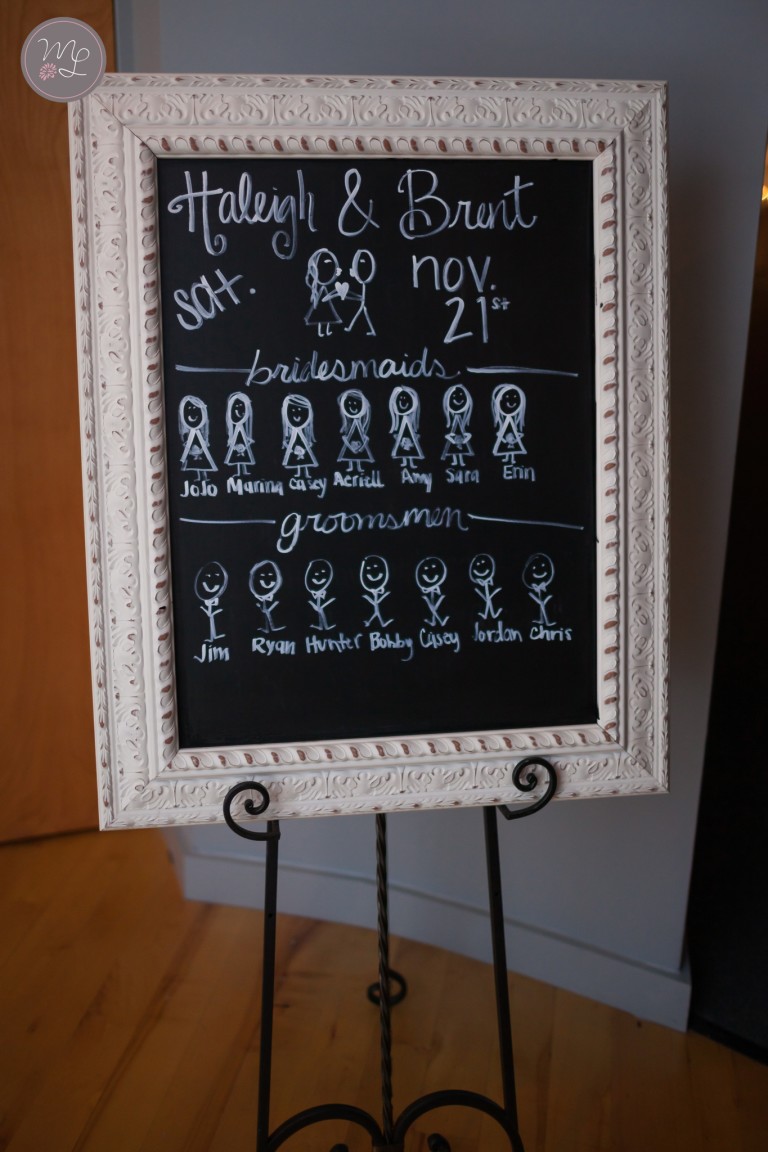 ML
Haleigh & Brent
sat.
nov.
21st
bridesmaids
JoJo Marina Casey Aeriell Amy Sara Erin
groomsmen
Jim Ryan Hunter Bobby Casey Jordan Chris